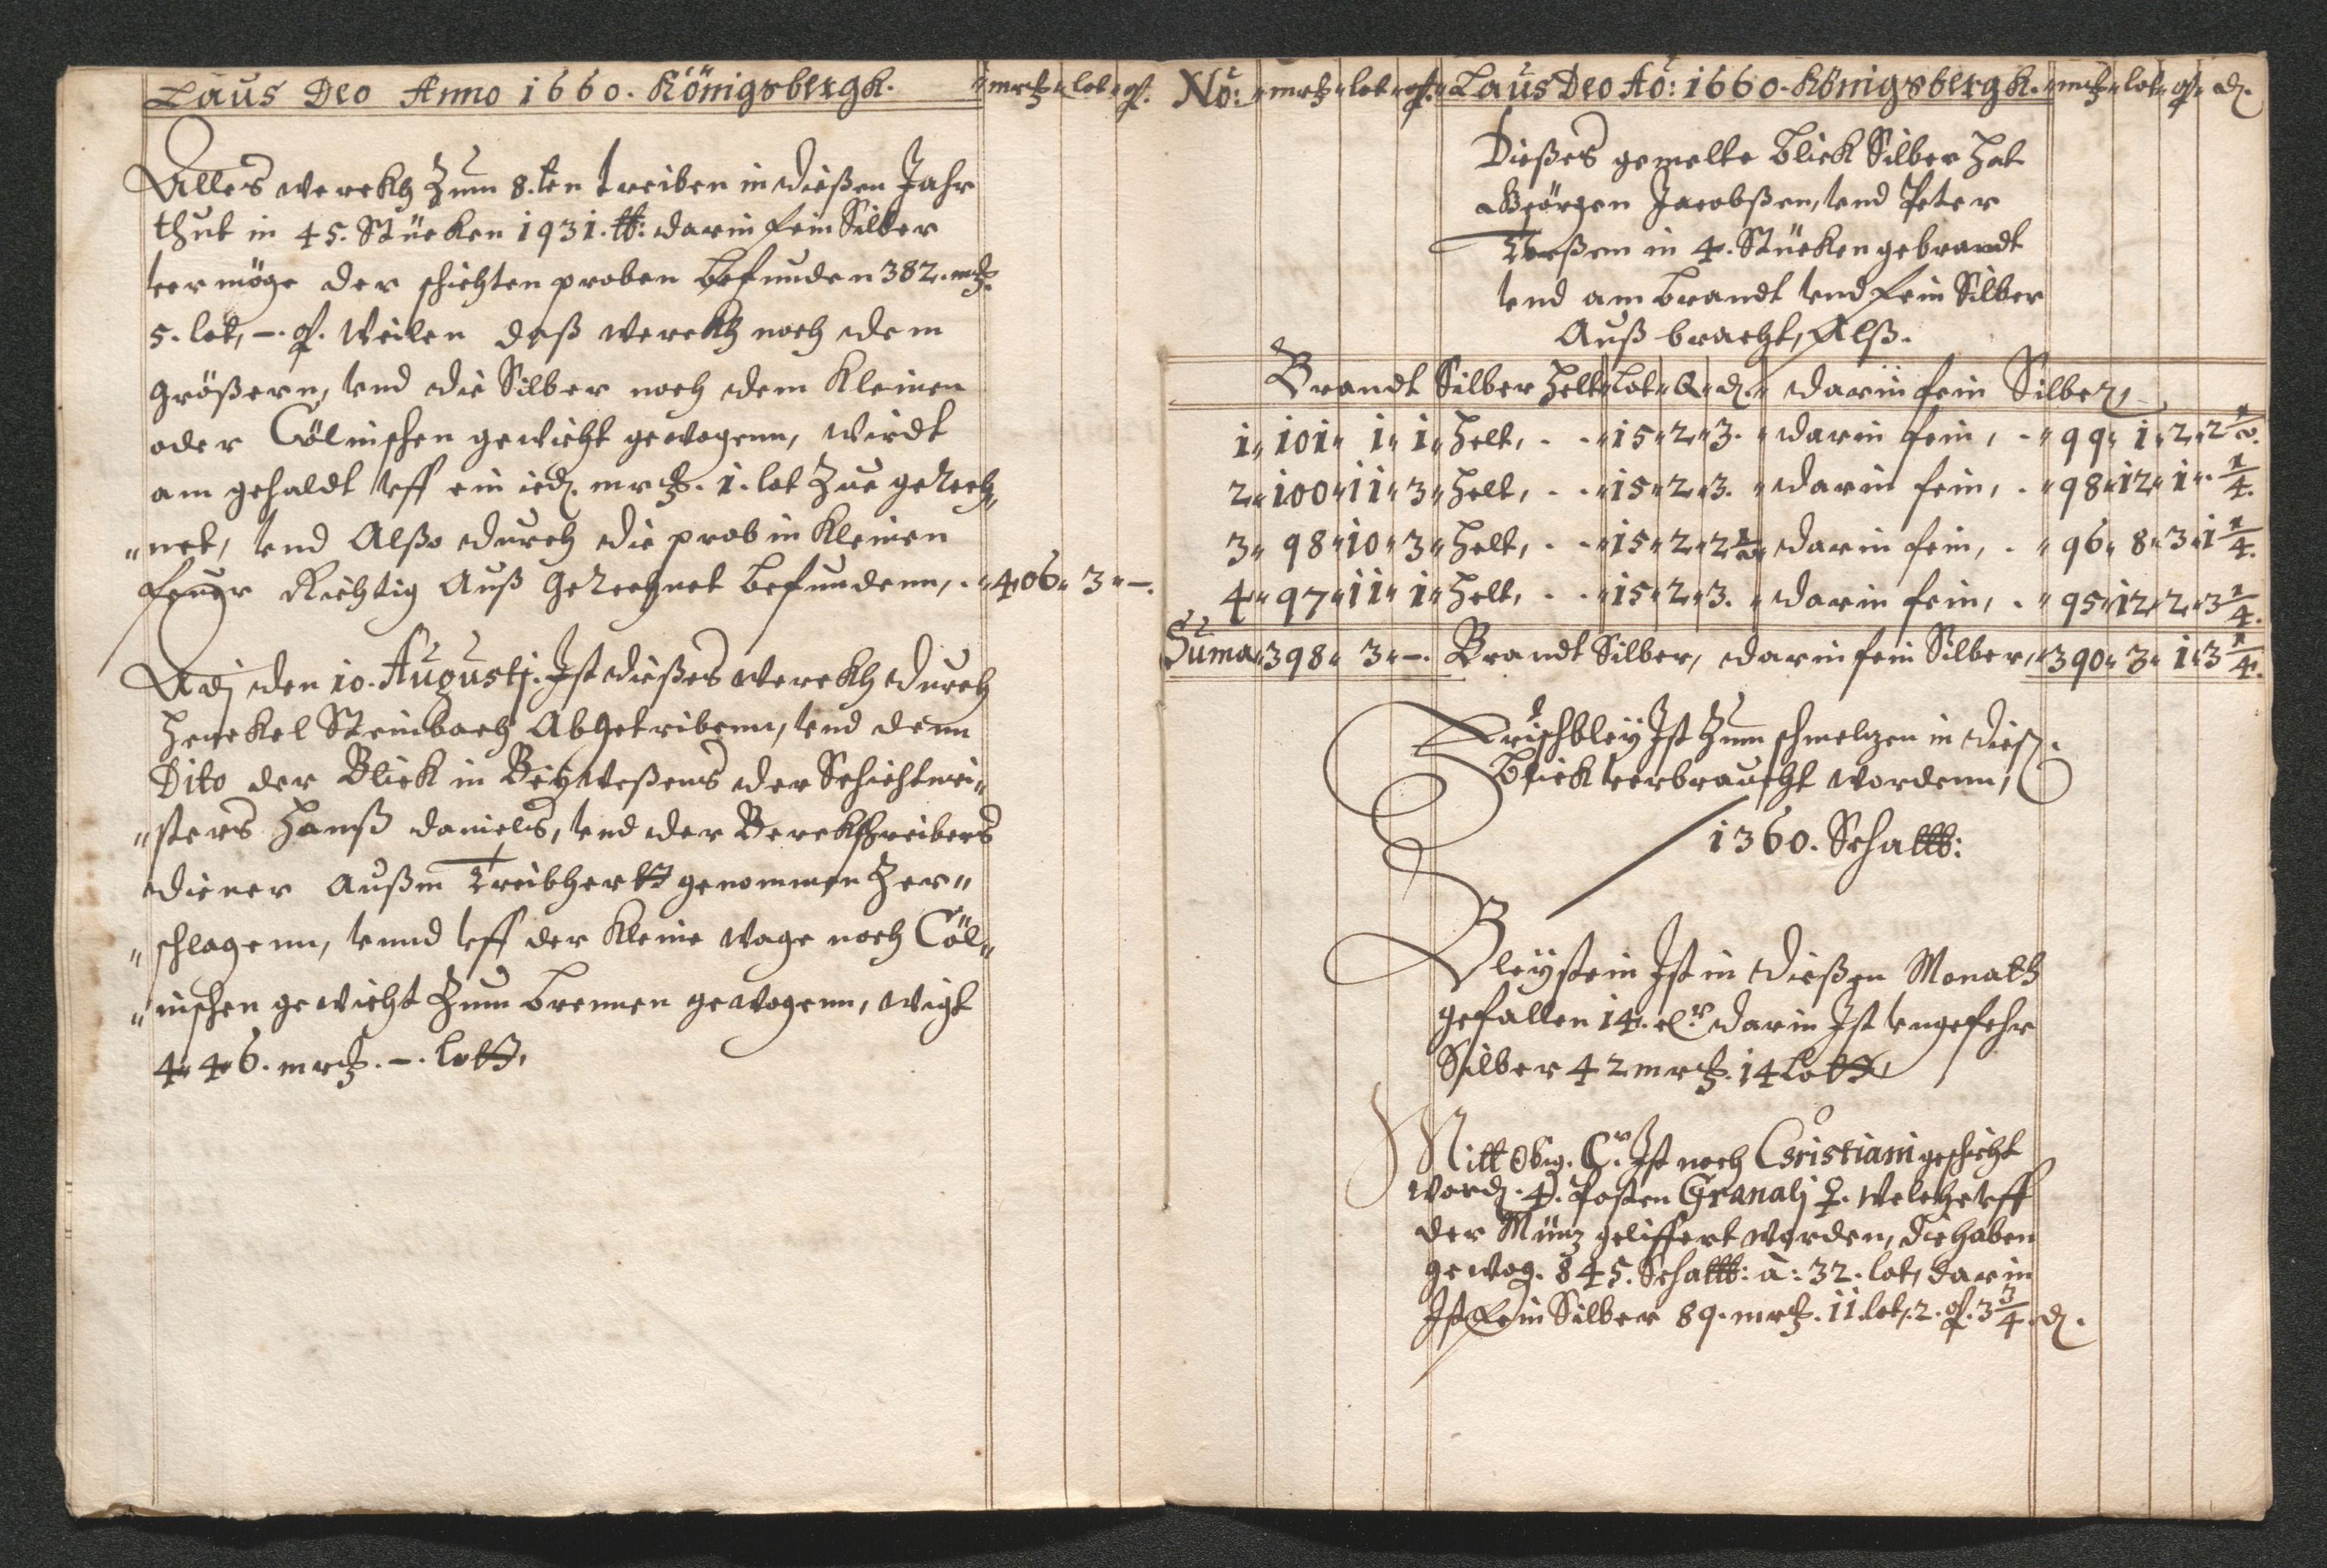 Laus Deo Anno 1660. Königsbergk. " mrck " lot " q.
Alles werckh Zum 8.ten treiben in dießen Jahr
thut in 45. Stücken 1931. ℔: darin fein Silber
vermöge der schichten proben befunden 382. mck.
5. lot, –. q. Weilen daß werckh noch dem
größern, vnd die Silber noch dem Kleinen
oder Cölnischen gewicht gewogenn, wirdt
am gehaldt vff ein ied. mrck. 1. lot Zue gerech„
„net, vnd Alßo durch die prob in Kleinen
feuer Richtig Auß Gerechnet befundenn, . " 406 " 3 " –.
Adj den 10. Augustj. Ist dießes werckh durch
Henckel Steinbach Abgetribenn, vnd denn
Dito der Blick in Beyweßens der Schichtmei„
„sters Hanß daniels, vnd der Berckschreibers
diener Außm Treibhertt genommen Zer„
„schlagenn, vnnd vff der Kleine wage noch Cöl„
„nischen gewicht Zum brennen gewogenn, wigt
446. mrck. –. lott,
No: " mrk " lot " q. " Laus Deo Ao: 1660. Königsbergk. " mrk " lot " q " d.
Dießes gemelte blick Silber hat
Geörgen Jacobßen, vnd Peter
in 4. Stücken gebrandt
vnd am brandt vnd fein Silber
Auß bracht, Alß.
Brandt Silber helt " Lot " Q " d. " darin fein Silber,
1 " 101 " 1 " 1 " helt, . . " 15 " 2 " 3. " darin fein, . " 99 " 1 " 2 " 2 1/2.
2 " 100 " 11 " 3 " helt, . . " 15 " 2 " 3. " darin fein, . " 98 " 12 " 1 " . 1/4.
3 " 98 " 10 " 3 " helt, . . " 15 " 2 " 2 1/2 " darin fein, . " 96 " 8 " 3 " 1 1/4.
4 " 97 " 11 " 1 " helt, . . " 15 " 2 " 3. " darin fein, . " 95 " 12 " 2 " 3 1/4.
Suma " 398 " 3 " –. Brandt Silber, darin fein Silber, " 390 " 3 " 1 " 3 1/4.
Frischbley Ist Zum schmelzen in dieß.
blick verbraucht wordenn,
1360. Schal℔:
Bleystein Ist in dießen Monath
gefallen 14. Cr. darin Ist vngefehr
Silber 42 mrck. 14 Lott,
Mitt Obig. Cr. Ist noch Cristiani geschicht
word. 4. Posten Granalj ♀. welche vff
der Müntz geliffert worden, die haben
gewog. 845. Schal℔: à: 32. lot, darin
Ist Fein Silber 89. mrck. 11. lot, 2. q. 3 3/4. d.